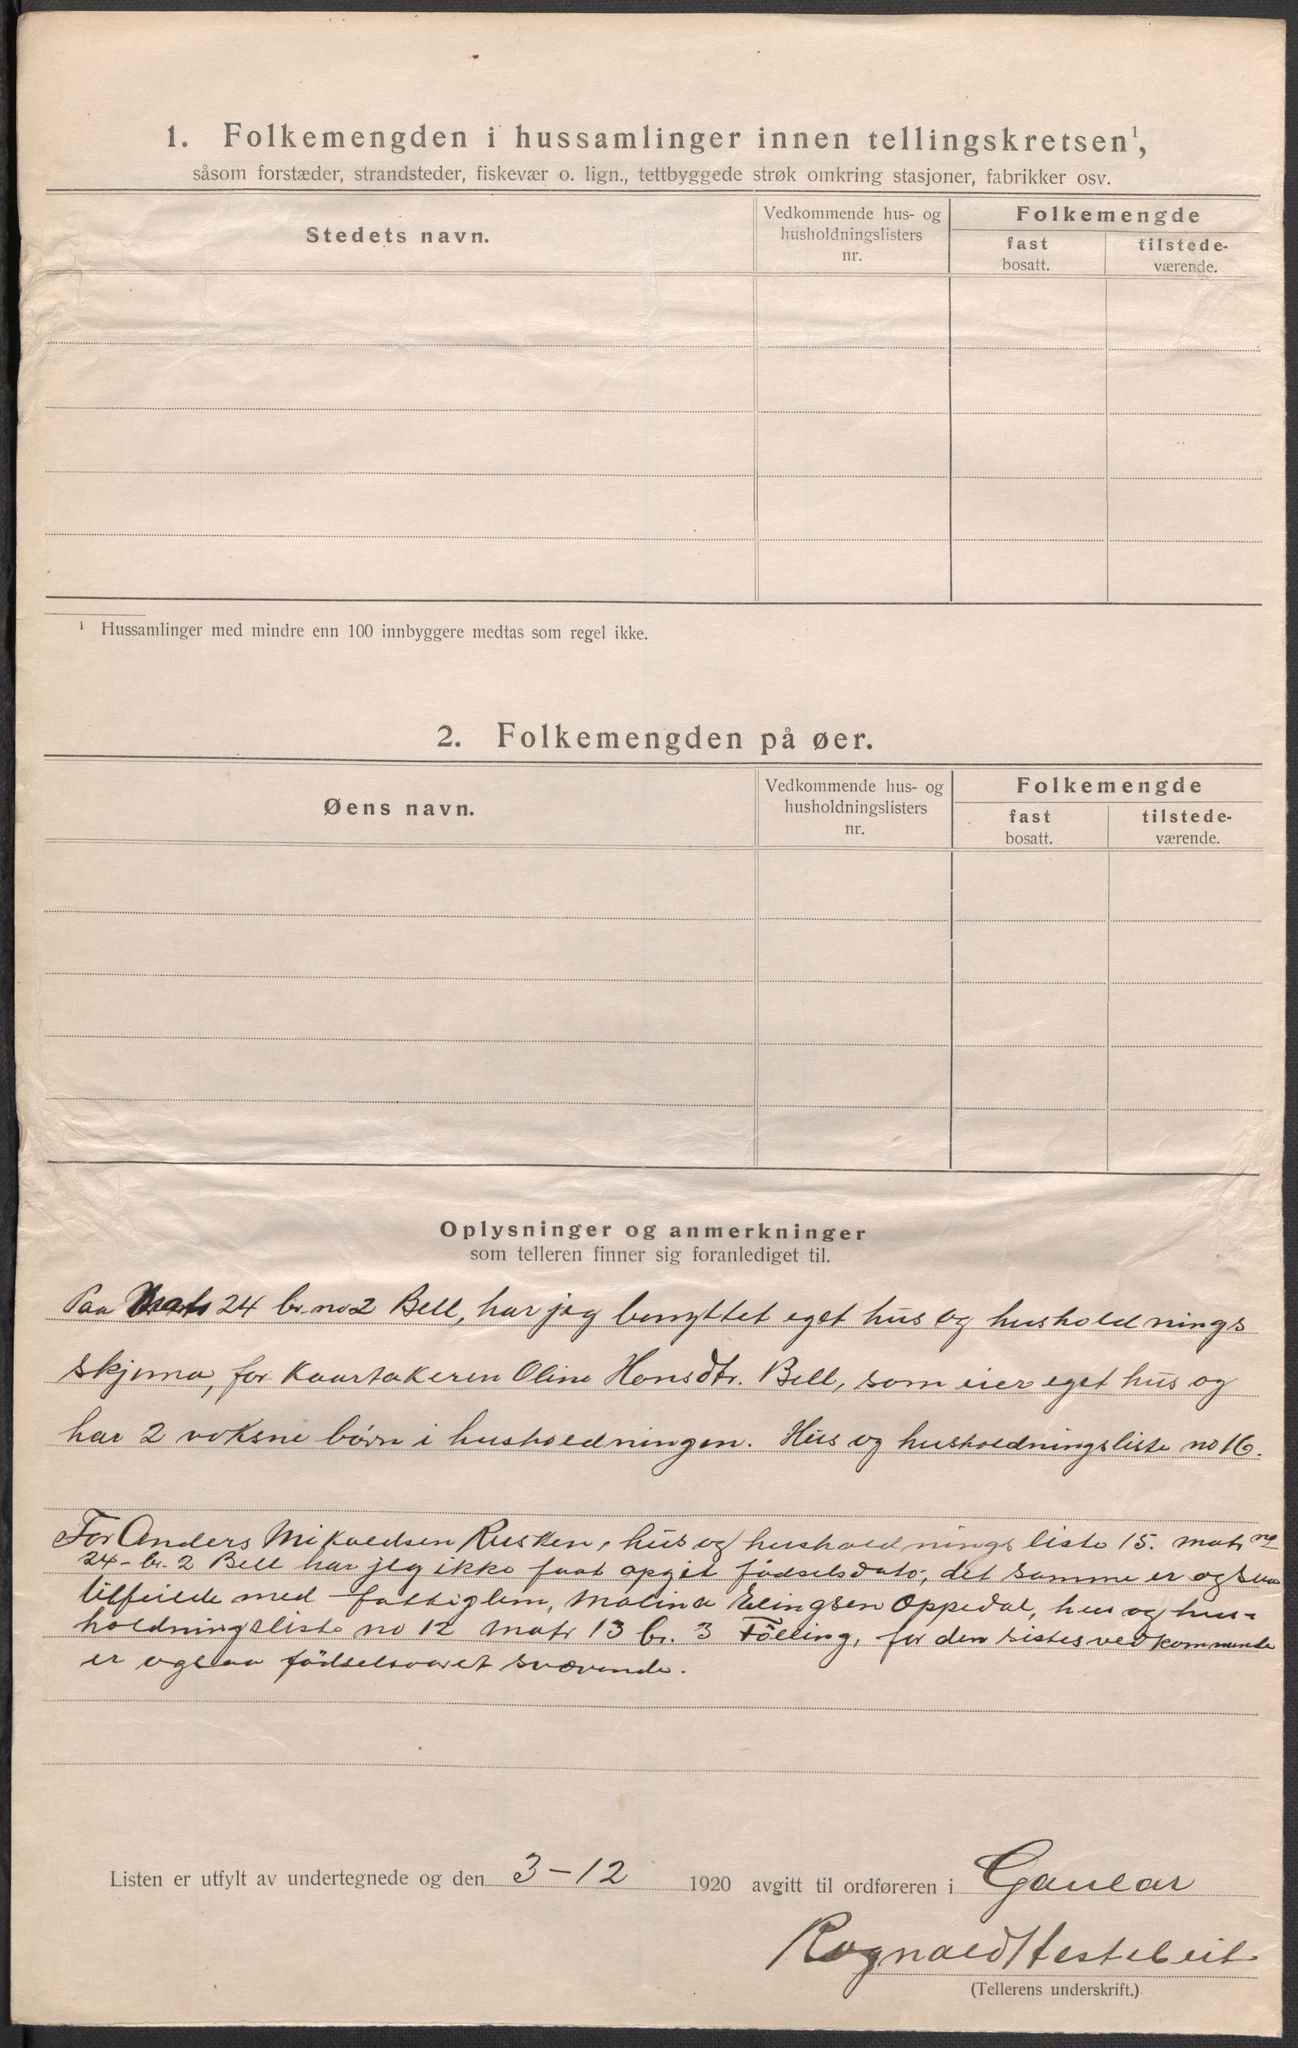 1. Folkemengden i hussamlinger innen tellingskretsen¹,
såsom forstæder, strandsteder, fiskevær o. lign., tettbyggede strøk omkring stasjoner, fabrikker osv.
Stedets navn.
Vedkommende hus- og
husholdningslisters
nr.
Folkemengde
fast
bosatt.
tilstede-
værende.
¹ Hussamlinger med mindre enn 100 innbyggere medtas som regel ikke.
2. Folkemengden på øer.
Øens navn.
Vedkommende hus- og
husholdningslisters
nr.
Folkemengde
fast
bosatt.
tilstede-
værende.
Oplysninger og anmerkninger
som telleren finner sig foranlediget til.
Paa 24 br. no 2 Bell, har jeg benyttet eget hus og husholdnings
skjema, for kaartakeren Oline Hansdtr. Bell, som eier eget hus og
har 2 voksne børn i husholdningen. Hus og husholdningsliste no 16.
For Anders Mikaldsen Rusken, hus og husholdningsliste 15. matr no
24 - br. 2 Bell har jeg ikke faat opgit fødselsdato, det samme er ogsaa
tilfeilde med fattiglem, Malina Elingsen Oppedal, hus og hus-
holdningsliste no 12 Matr 13 br. 3 Fölling, for den sistes vedkommende
er ogsaa födselsaaret svævende.
Listen er utfylt av undertegnede og den 3-12 1920 avgitt til ordføreren i Gaular
Rognald Hestebeit
(Tellerens underskrift.)